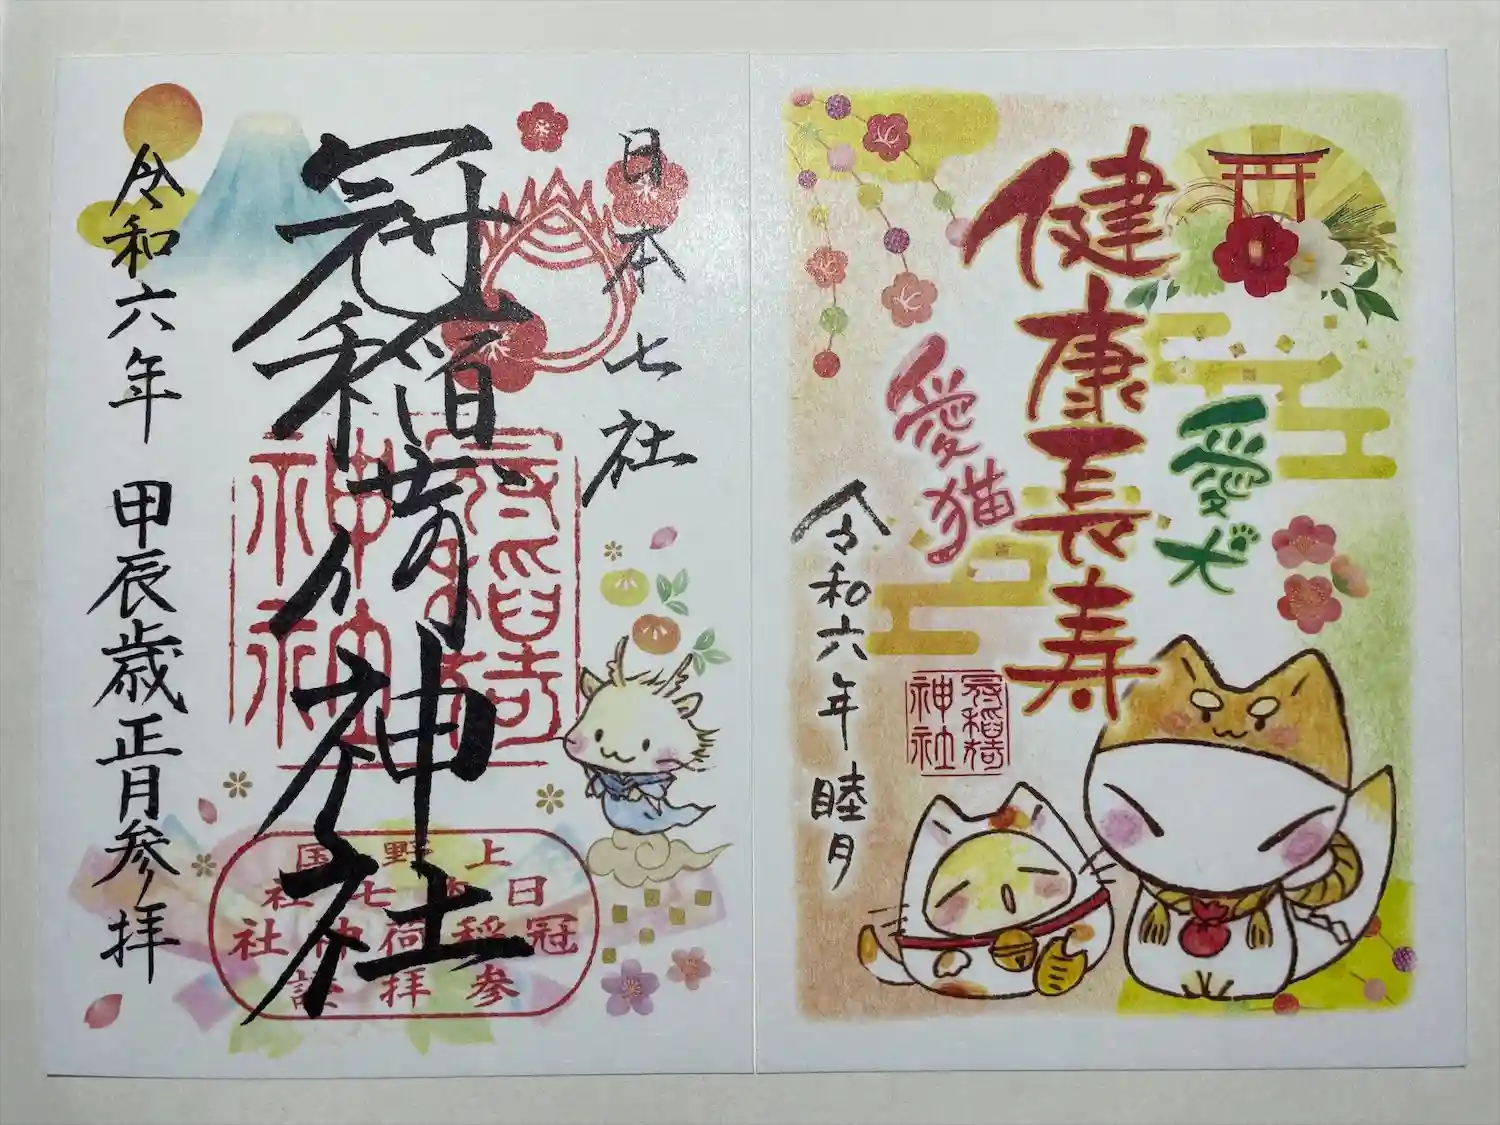 日本七社
冠稲荷神社
令和六年 甲辰歳正月参拝
冠稲荷
神社
上野国
日本七社
冠稲荷神社
参拝証
愛犬
健康長寿
愛猫
令和六年 睦月
冠稲荷
神社